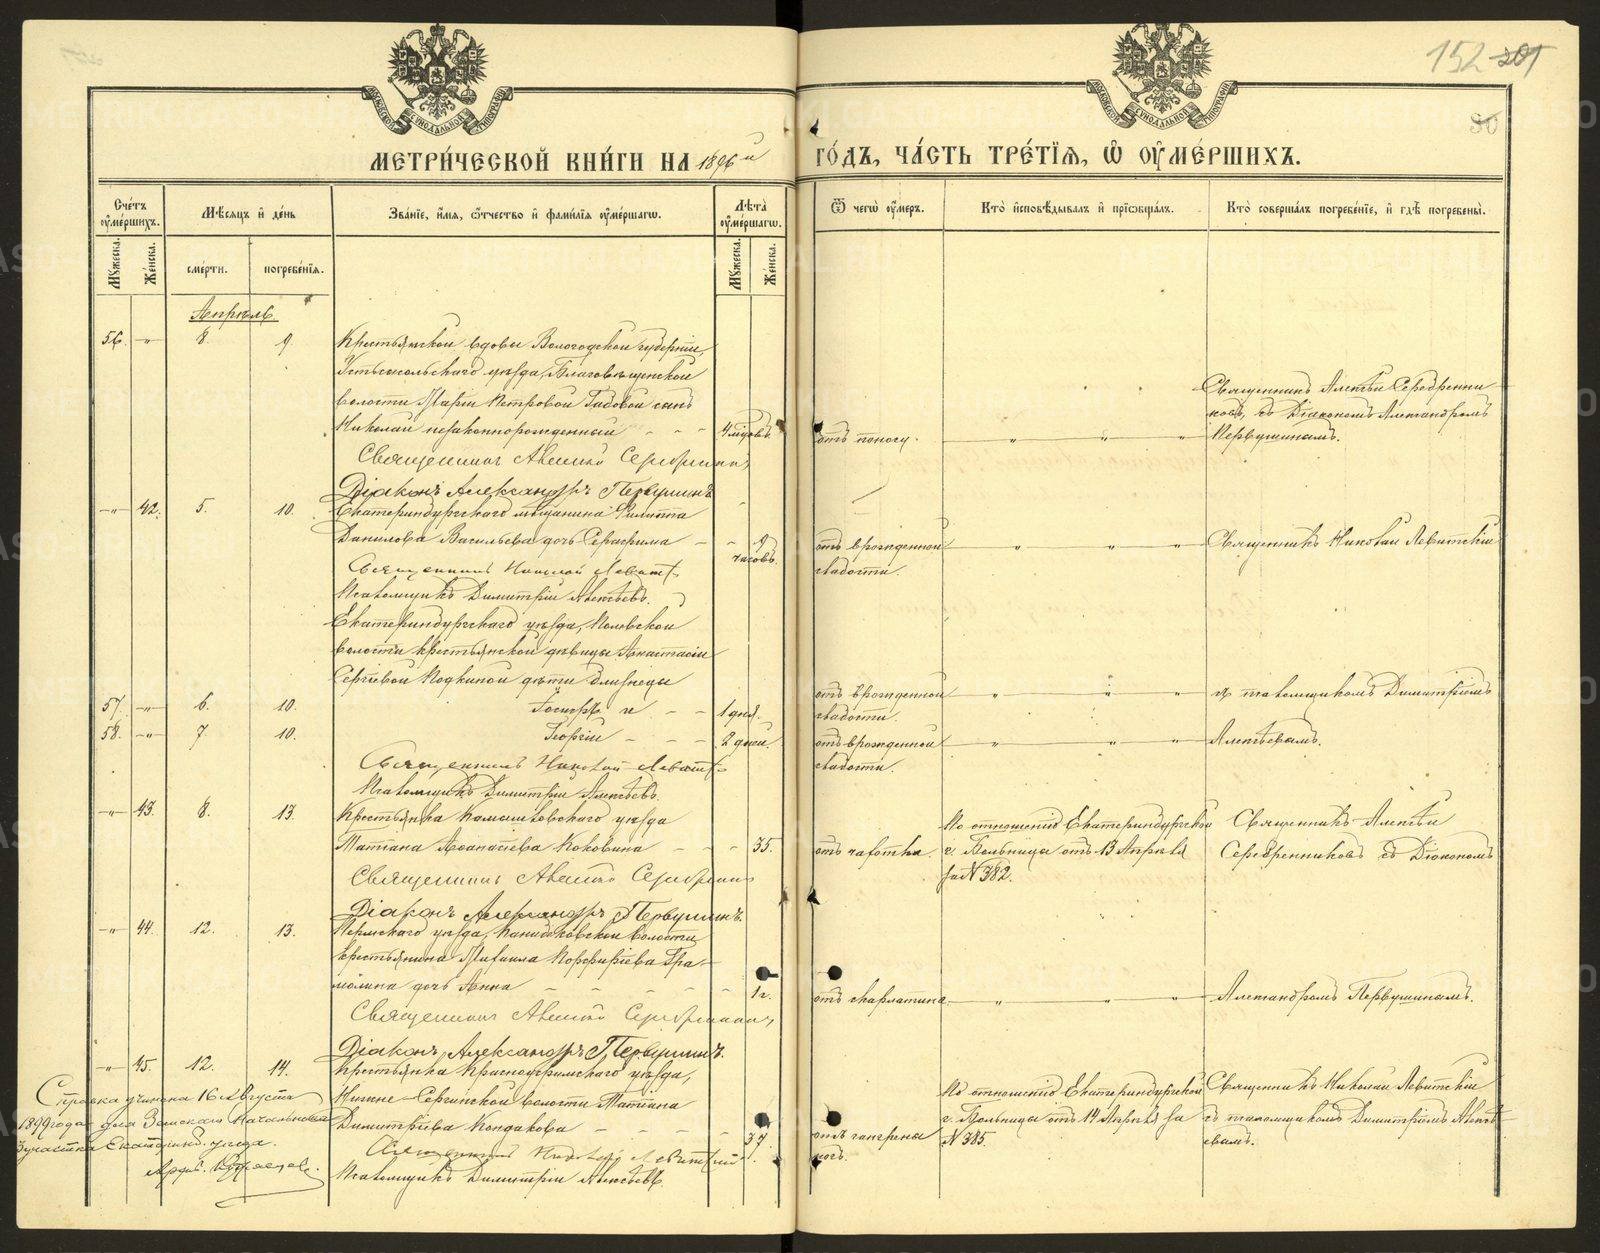 152 201
30
МОСКОВСКОЙ СѴНОДАЛЬНОЙ ТИПОГРАФІИ
МОСКОВСКОЙ СѴНОДАЛЬНОЙ ТИПОГРАФІИ
МЕТРИ́ЧЕСКОЙ КНИ́ГИ НА 1896й ГО́ДЪ, ЧА́СТЬ ТРЕ́ТІѦ, Ѡ҆ ОУ҆МЕ́РШИХЪ.
Сче́тъ оу҆ме́ршихъ.
Мѣ́сяцъ и҆ де́нь
Зва́ніе, и҆́мѧ, ѻ҆́тчество и҆ фами́лїѧ оу҆ме́ршагѡ.
Лѣ́та оу҆ме́ршагѡ.
Ѿ чегѡ̀ оу҆́меръ.
Кто̀ и҆сповѣ́дывалъ и҆ прїѡбща́лъ.
Кто̀ соверша́лъ погребе́нїе, и҆ гдѣ̀ погребены̀.
Мꙋ́жеска.
Же́нска.
сме́рти.
погребе́нїѧ.
Мꙋ́жеска.
Же́нска.
Апрѣль.
56. -„- 8. 9. Крестьянской вдовы Вологодской губерніи,
Устьсысольскаго уѣзда, Благовѣщенской
волости Маріи Петровой Гадовой сынъ
Николай незаконнорожденный - - - 4 мѣсяцъ. отъ поносу. „ „ „ Священникъ Алексѣй Серебренни
ковъ, съ Діакономъ Александромъ
Первушинымъ.
Священникъ Алексѣй Серебренниковъ
Діаконъ Александръ Первушинъ
-„- 42. 5. 10. Екатеринбургскаго мѣщанина Филиппа
Данилова Васильева дочь Серафима - - 9 часовъ. отъ врожденной
слабости. „ „ „ Священникъ Николай Левитскій
Священникъ Николай Левитск.
Псаломщикъ Димитрій Алексѣевъ.
Екатеринбургскаго уѣзда, Полевской
волости крестьянской дѣвицы Анастасіи
Сергіевой Подкиной дѣти близнецы
57. -„- 6. 10. Іосифъ и - - 1 дня. отъ врожденной
слабости. „ „ „ съ псаломщикомъ Димитріемъ
58. -„- 7 10. Георгій - - - 2 дней. отъ врожденной
слабости. „ „ „ Алексѣевымъ.
Священникъ Николай Левитск.
Псаломщикъ Димитрій Алексѣевъ.
-„- 43. 8. 13. Крестьянка Камышловскаго уѣзда
Татіана Аѳанасіева Коковина - - - 35. отъ чахотки. По отношенію Екатеринбургской
г. Больницы отъ 13 Апрѣля
за № 382. Священникъ Алексѣй
Серебренниковъ съ Діакономъ
Священникъ Алексѣй Серебренник
Діаконъ Александръ Первушинъ.
-„- 44. 12. 13. Пермскаго уѣзда, волости
крестьянина Михаила Порфиріева Гра-
молина дочь Анна - - - - - 1 г. отъ скарлатина. „ „ „ Александромъ Первушинымъ.
Священникъ Алексѣй Серебренниковъ
Діаконъ Александръ Первушинъ.
-„- 45. 12. 14. Крестьянка Красноуфимскаго уѣзда,
Нижне-Сергинской волости Татіана
Димитріева Кондакова - - - - 37. отъ гангрены
ногъ. По отношенію Екатеринбургской
г. Больницы отъ 14 Апрѣля за
№ 385. Священникъ Николай Левитскій
съ псаломщикомъ Димитріемъ Алексѣ
евымъ.
Священникъ Николай Левитскій
Псаломщикъ Димитрій Алексѣевъ.
Справка учинена 16 Августа
1899 года для Земскаго Начальника
3 участка Екатеринб. уѣзда.